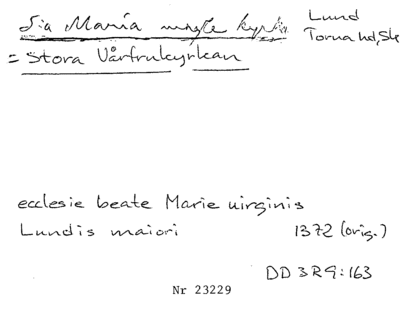 S:a Maria magle kyrka
Lund
Torna hd, Sk
= Stora Vårfrukyrkan
ecclesie beate Marie uirginis
Lundis maiori 1372 (orig.)
DD 3R9:163
Nr 23229